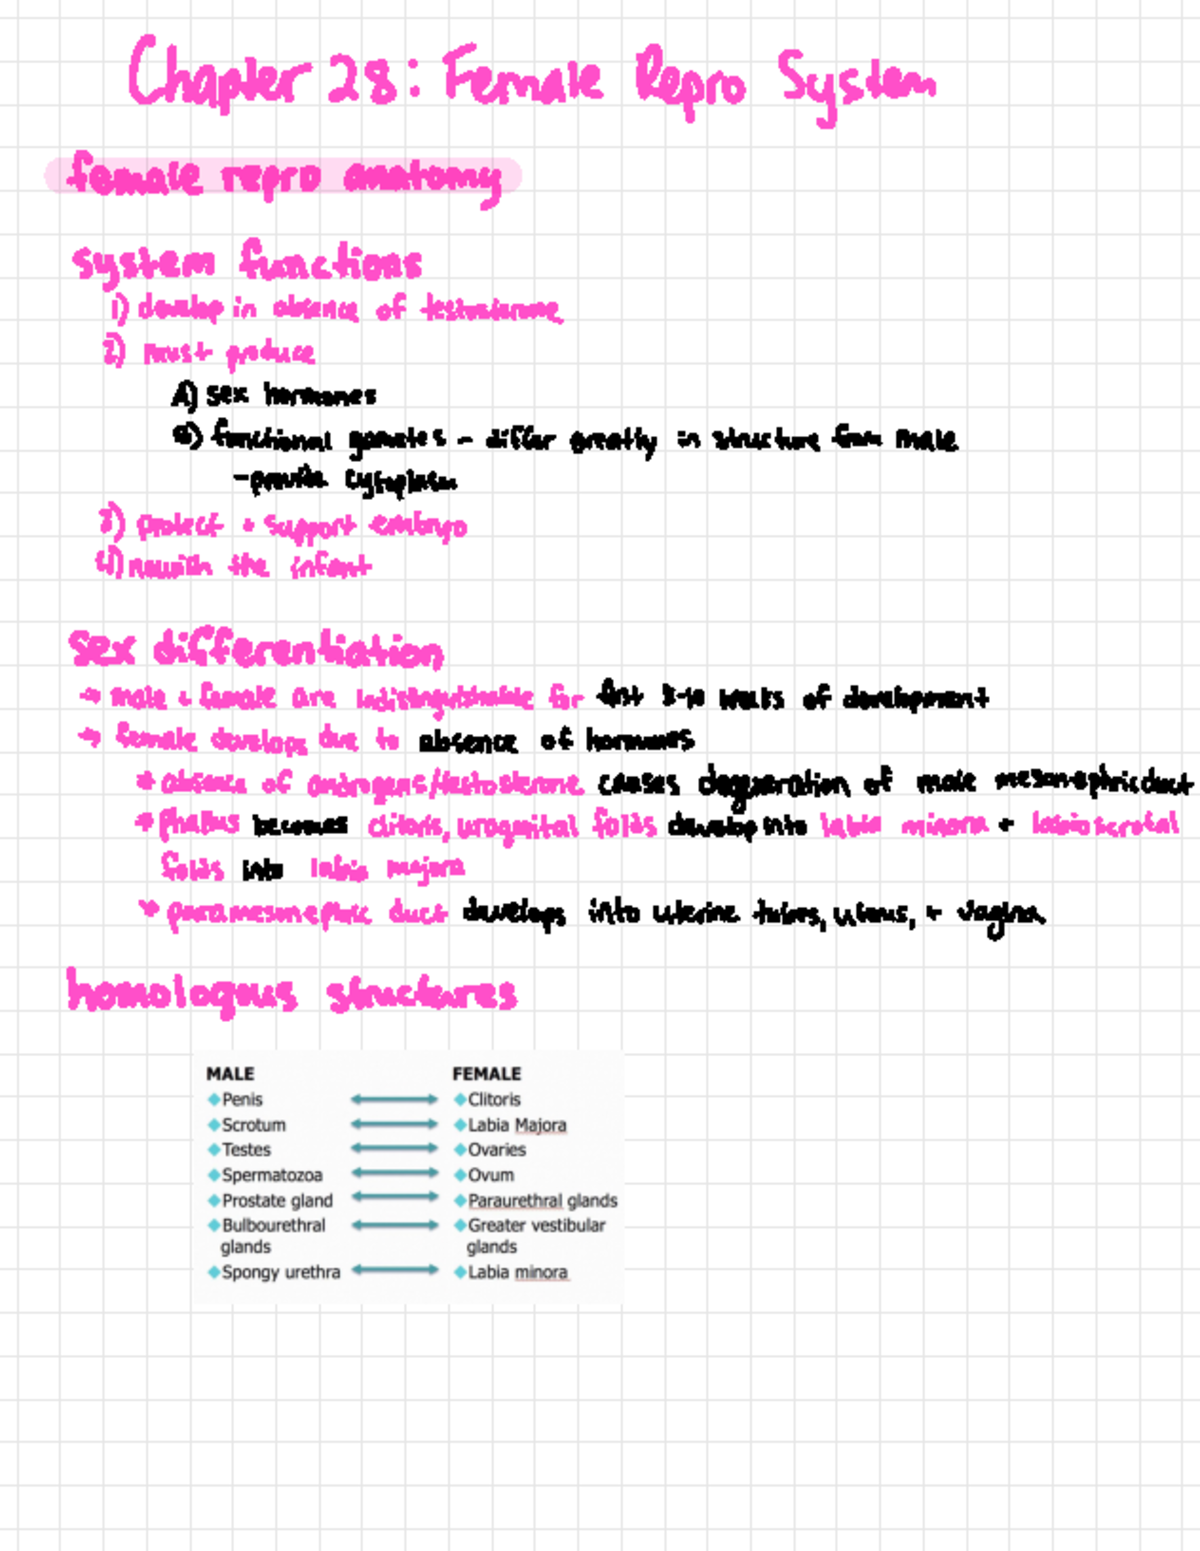 Chapter 28: Female Repro System
female repro anatomy
system functions
1) develop in absence of testosterone
2) must produce
A) sex hormones
B) functional gametes - differ greatly in structure from male
- provide cytoplasm
3) protect + support embryo
4) nourish the infant
sex differentiation
→ male + female are indistinguishable for first 8-10 weeks of development
→ female develops due to absence of hormones
* absence of androgens/testosterone causes degeneration of male mesonephric duct
* phallus becomes clitoris, urogenital folds develop into labia minora + labioscrotal
folds into labia majora
* paramesonephric duct develops into uterine tubes, uterus, + vagina
homologous structures
MALE FEMALE
Penis Clitoris
Scrotum Labia Majora
Testes Ovaries
Spermatozoa Ovum
Prostate gland Paraurethral glands
Bulbourethral Greater vestibular
glands glands
Spongy urethra Labia minora